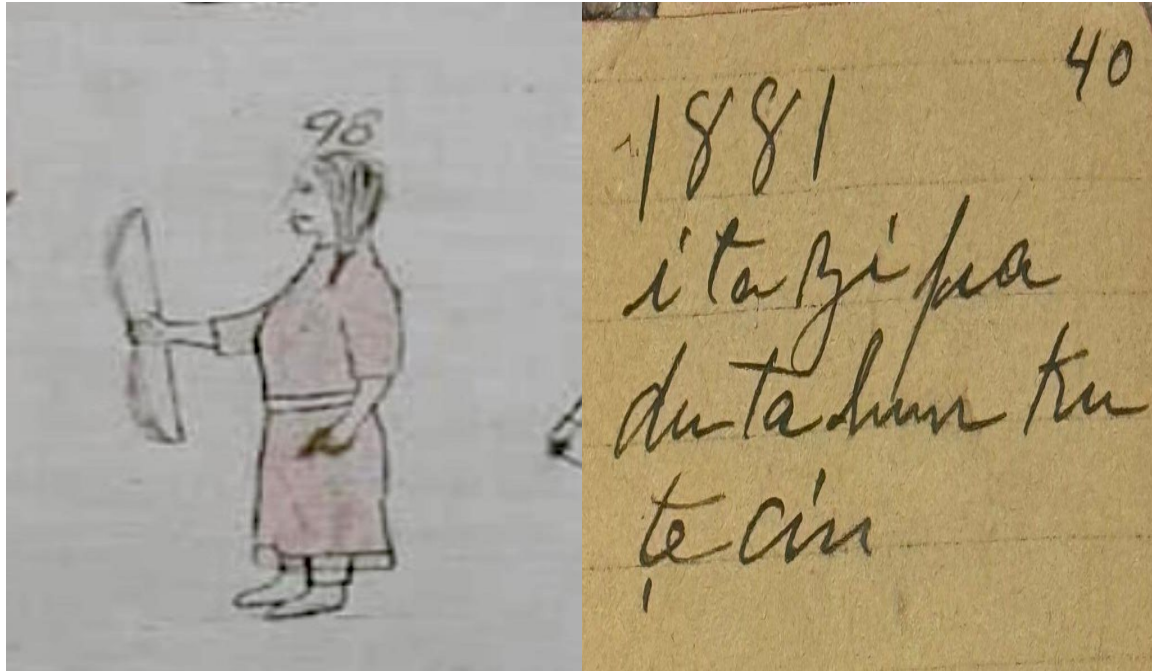 96
40
1881
itazipa
dutahun ku
ṭe cin